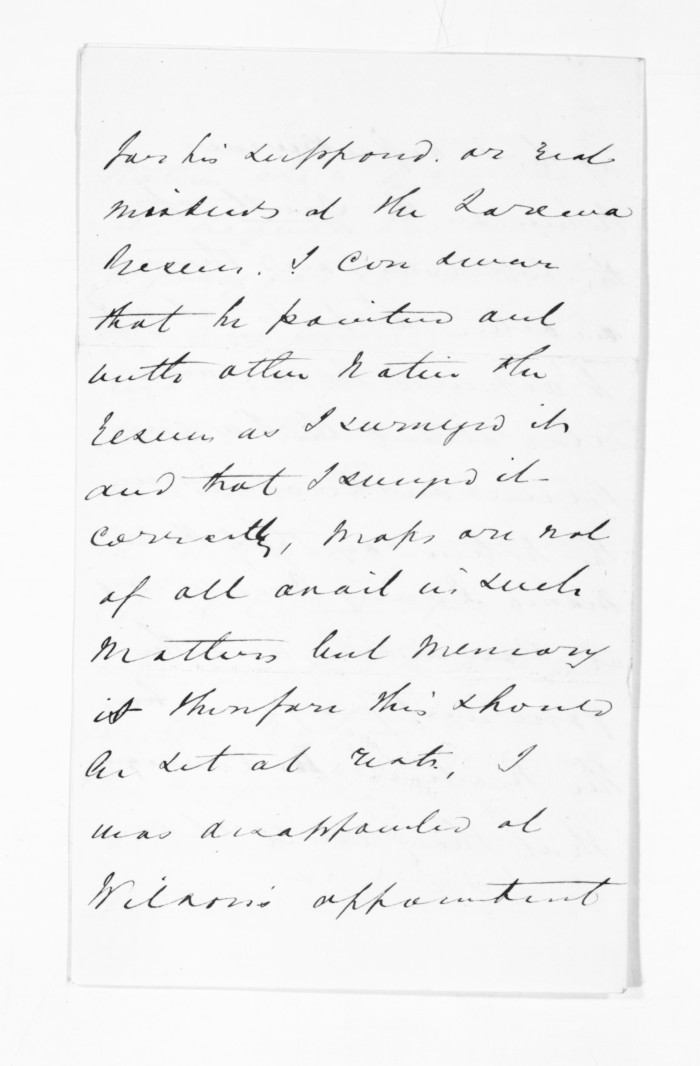 for his suppond. or real
misdeeds at the
Reserve. I can swear
that he pointed out
with other Natives the
Reserve as I surveyed it
and that I surveyed it
correctly, maps are not
of all avail in such
Matters but Memory
is therefore this should
be set at rest, I
was disappointed at
Wilson's appointment